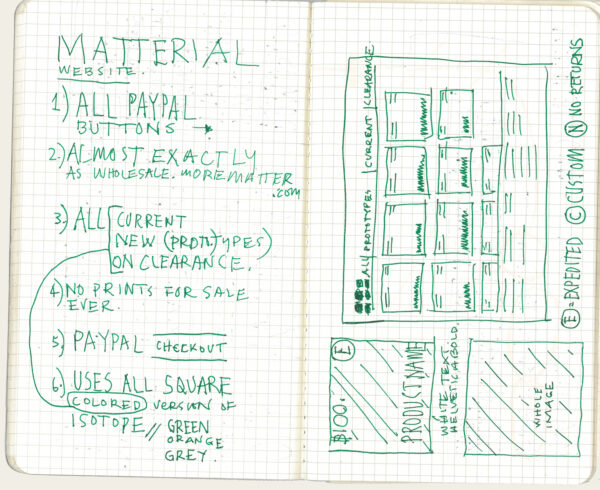 MATTERIAL
WEBSITE.
1) ALL PAYPAL
BUTTONS →
2) ALMOST EXACTLY
AS WHOLESALE. MOREMATTER
.COM
3.) ALL CURRENT
NEW (PROTOTYPES)
ON CLEARANCE.
4) NO PRINTS FOR SALE
EVER.
5) PAYPAL CHECKOUT
6.) USES ALL SQUARE
COLORED VERSION OF
ISOTOPE // GREEN
ORANGE
GREY.
ALL PROTOTYPES | CURRENT | CLEARANCE
Ⓔ = EXPEDITED Ⓒ CUSTOM Ⓝ NO RETURNS
$100. Ⓔ
PRODUCT NAME
WHITE TEXT
HELVETICA BOLD.
WHOLE
IMAGE